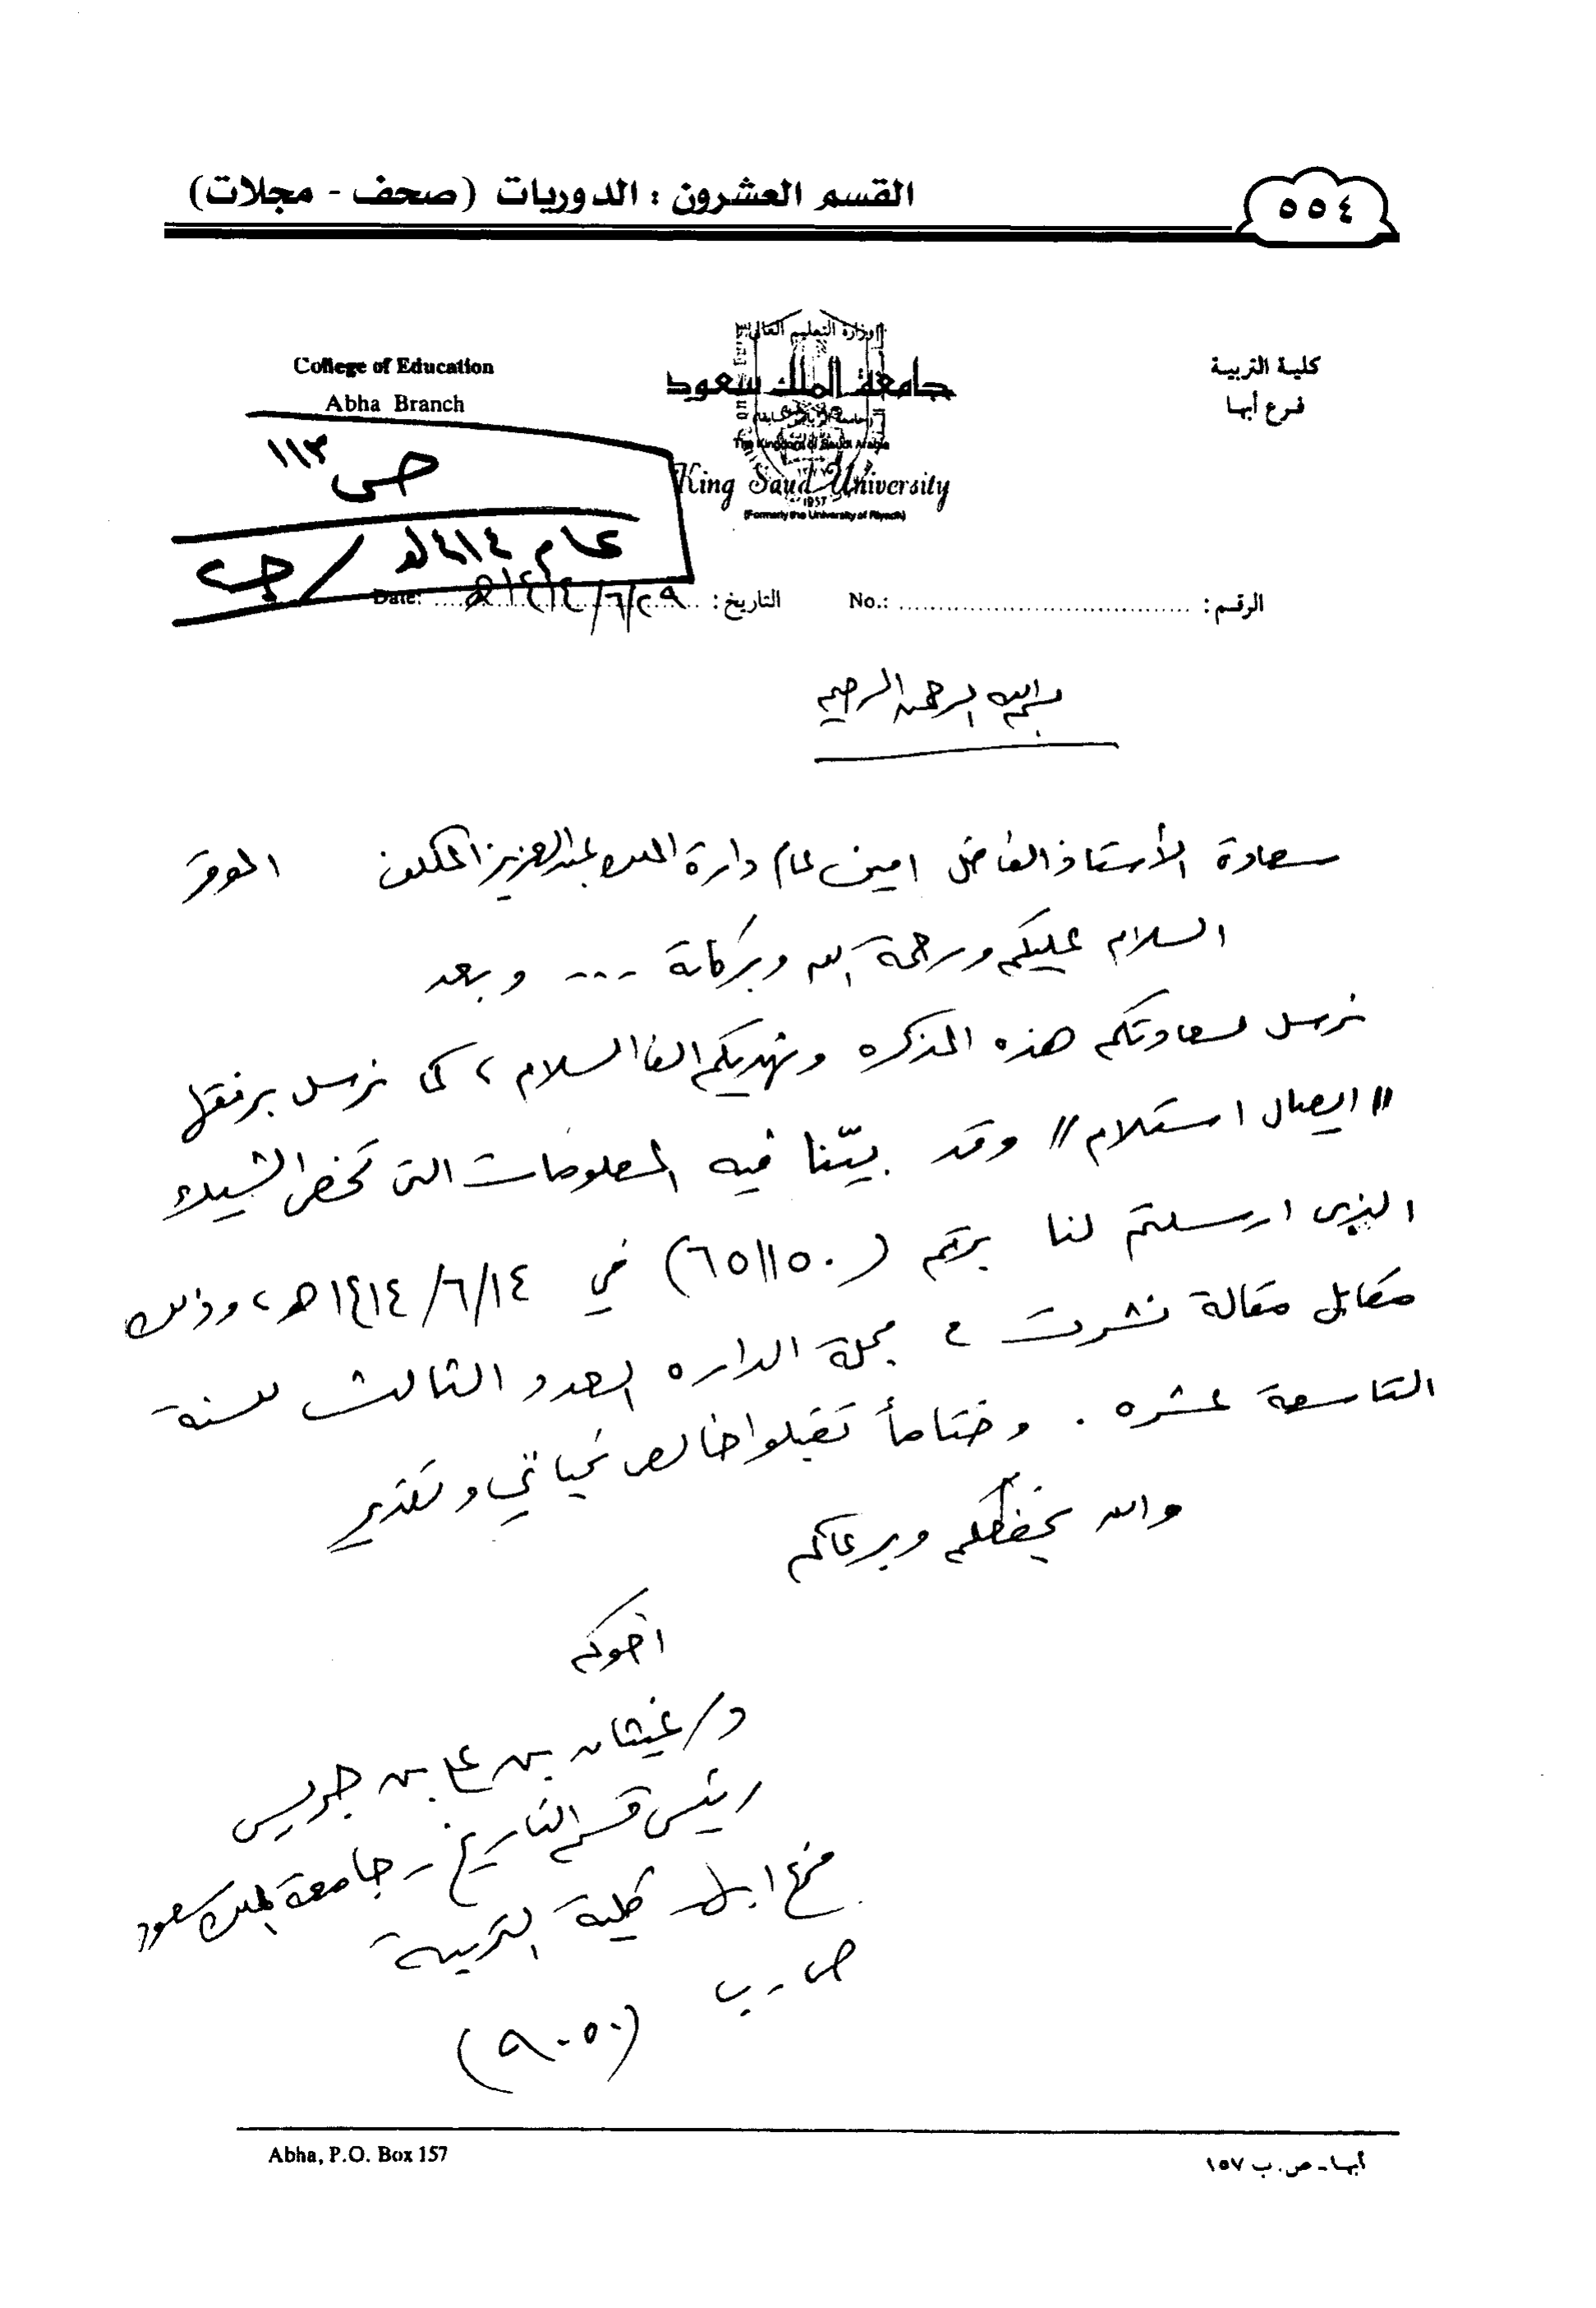 القسم العشرون : الدوريات (صحف - مجلات)
٥٥٤
كلية التربية
فرع أبها
وزارة التعليم العالي
جامعة الملك سعود
The Kingdom of Saudi Arabia
King Saud University
1957
(Formerly the University of Riyadh)
College of Education
Abha Branch
ص ١١٣
عام ١٤١٤هـ / ج
الرقم : No.:
التاريخ : ٢٩/٦/١٤١٤هـ Date:
بسم الله الرحمن الرحيم
سعادة الأستاذ الفاضل امين عام دارة الملك عبدالعزيز المكلف الموقر
السلام عليكم ورحمة الله وبركاته --- وبعد
نرسل لسعادتكم هذه المذكره ونهديكم الف السلام ، كما نرسل برفقها
" ايصال استلام " وقد بيّنا فيه المعلومات التي تخص الشيك
الذي ارسلتم لنا برقم (٦٥١١٥٠) في ١٤/٦/١٤١٤هـ ، وذلك
مقابل مقالة نشرت في مجلة الداره العدد الثالث للسنة
التاسعة عشره . وختاماً تقبلوا خالص تحياتي وتقديري
والله يحفظكم ويرعاكم
اخوكم
د/غيثان بن علي بن جريس
رئيس قسم التاريخ - جامعة الملك سعود
فرع ابها كلية التربية
ص . ب (٩٠٥٠)
Abha, P.O. Box 157
أبها - ص. ب ١٥٧